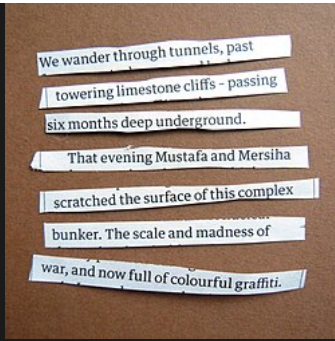 We wander through tunnels, past
towering limestone cliffs - passing
six months deep underground.
That evening Mustafa and Mersiha
scratched the surface of this complex
bunker. The scale and madness of
war, and now full of colourful graffiti.